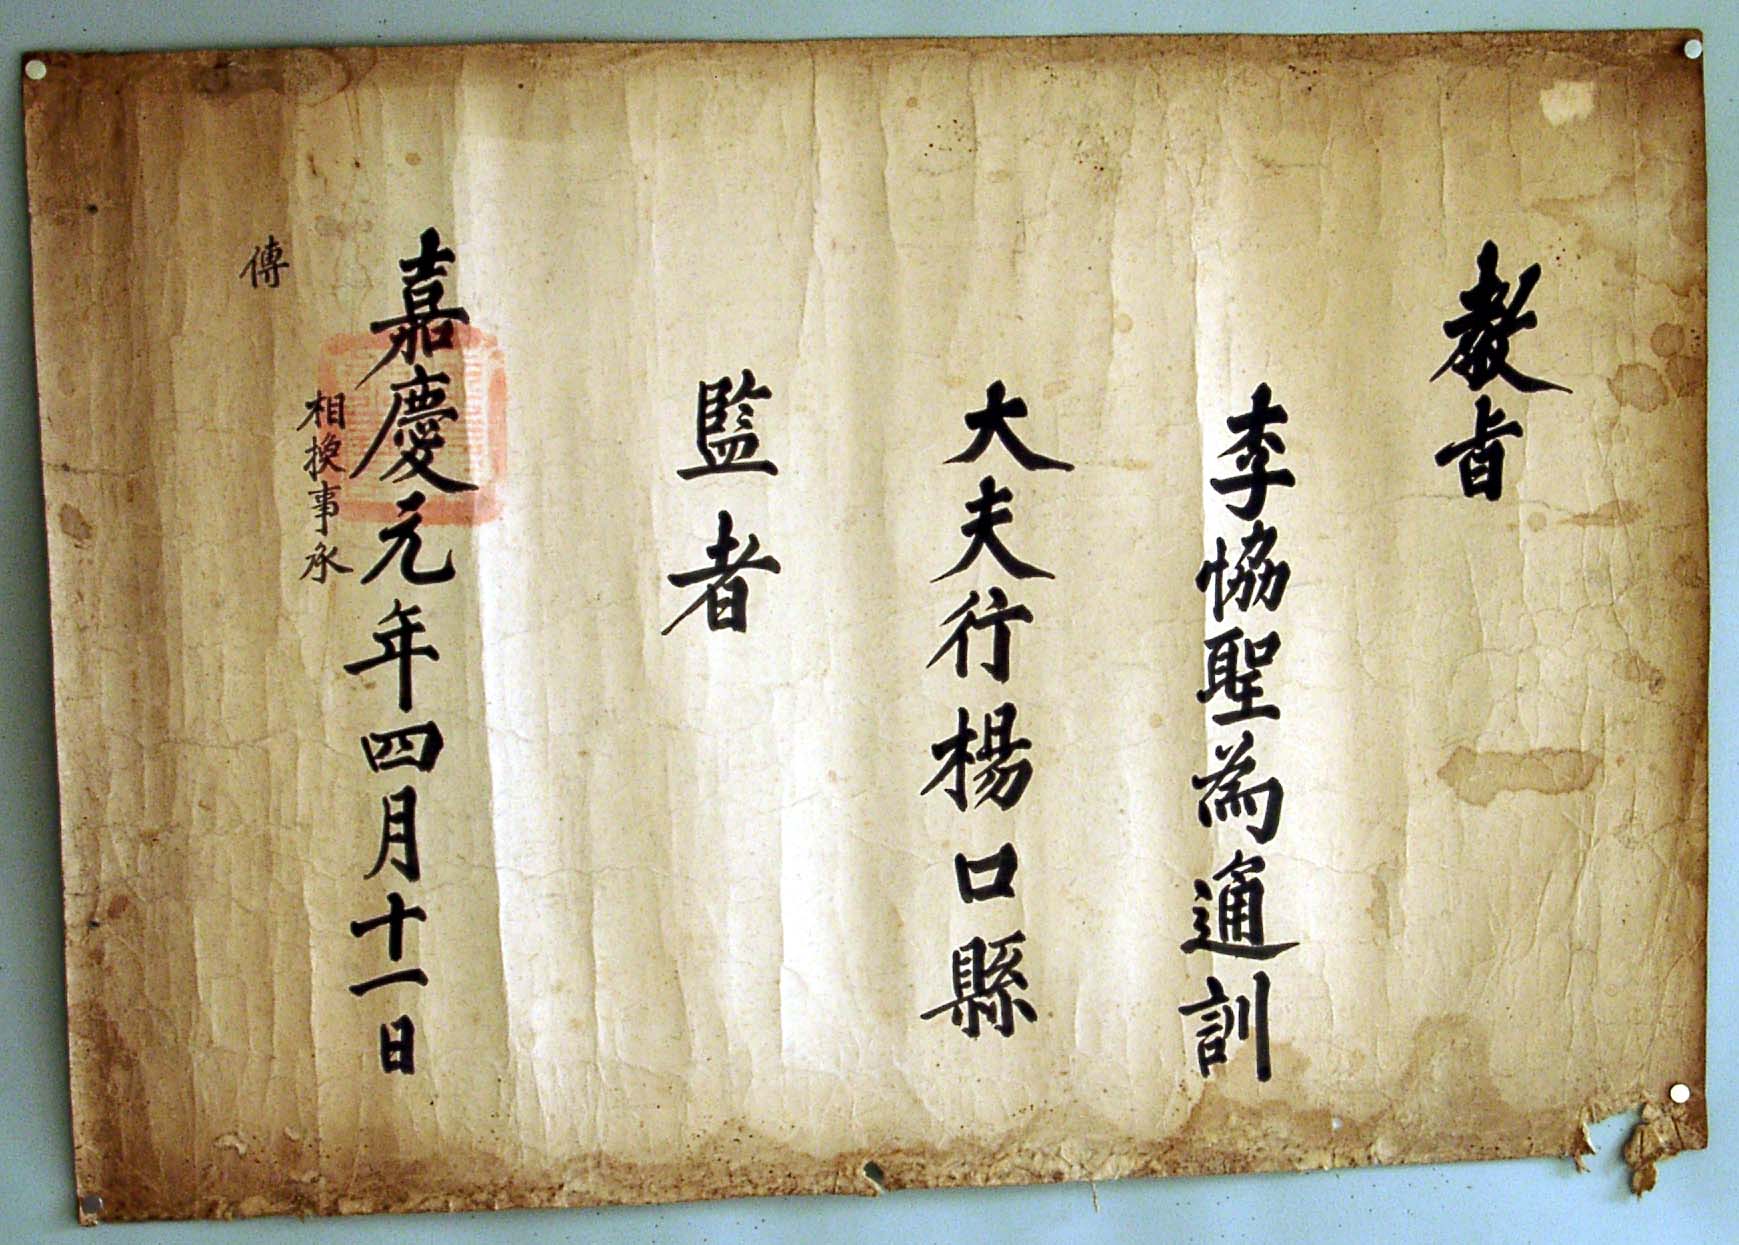 教旨
李恊聖為通訓
大夫行楊口縣
監者
嘉慶元年四月十一日
相換事承
傳